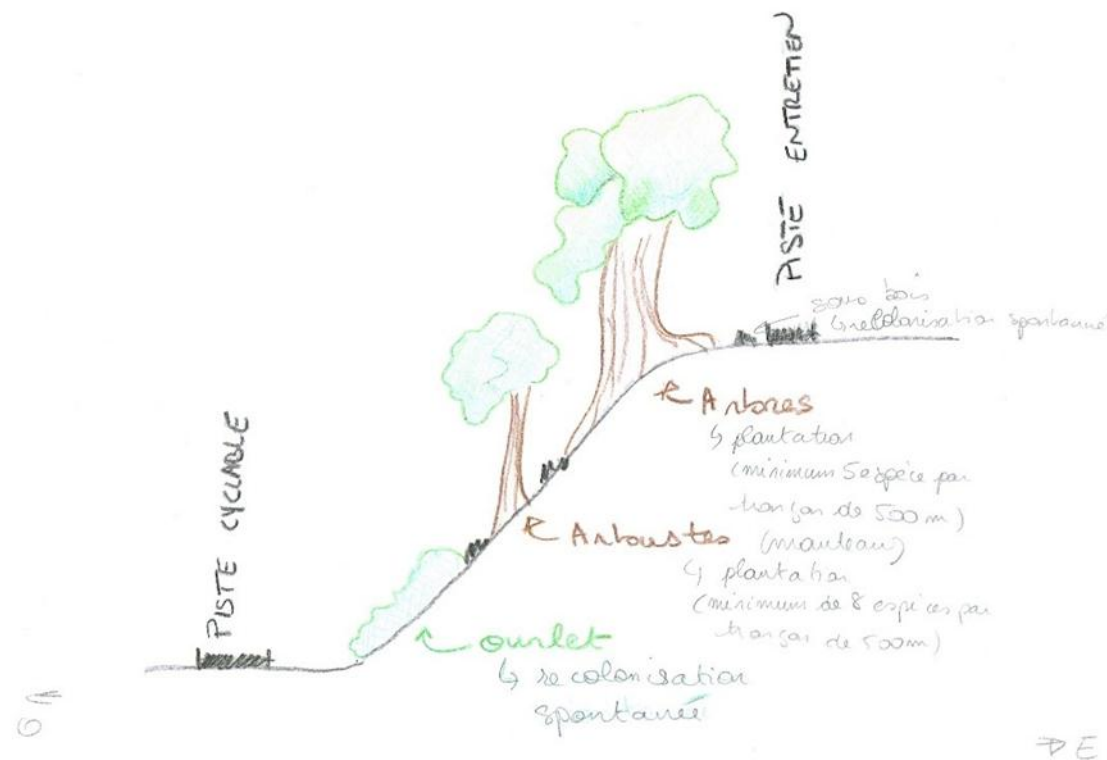 PISTE ENTRETIEN
sous bois
↳ recolonisation spontanné
Arbres
↳ plantation
(minimum 5 espèce par
tronçon de 500 m)
Arbustes (manteau)
↳ plantation
(minimum de 8 espèces par
tronçon de 500m)
PISTE CYCLABLE
ourlet
↳ recolonisation
spontanée
O
E